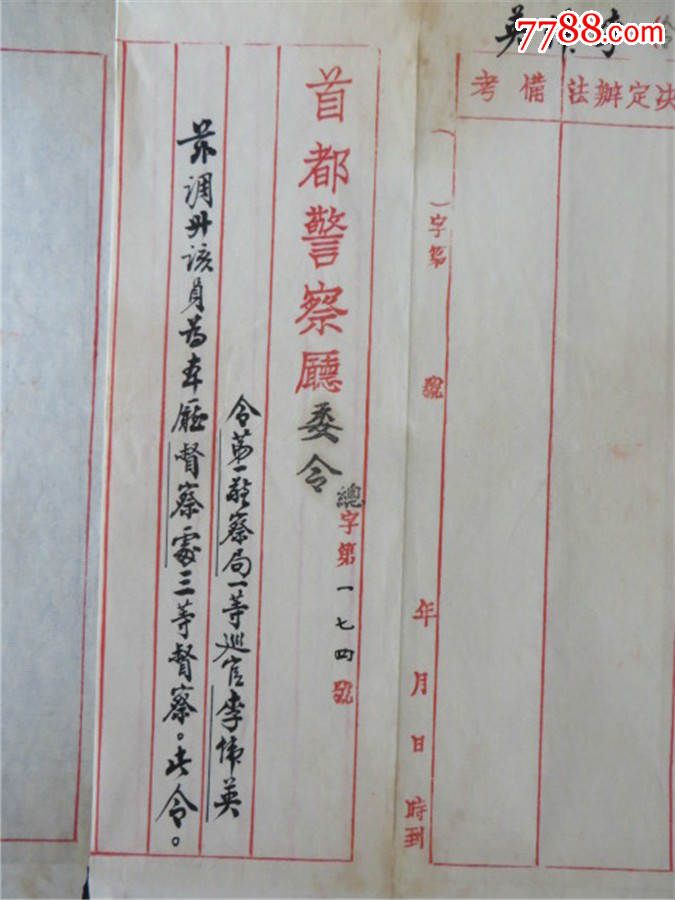 7788.com
英
备考
决定办法
（ ）字第 號
年 月 日 時到
首都警察廳委令
總字第一七四號
令第一警察局一等巡官李 英
茲調升該員為本廳督察處三等督察。此令。